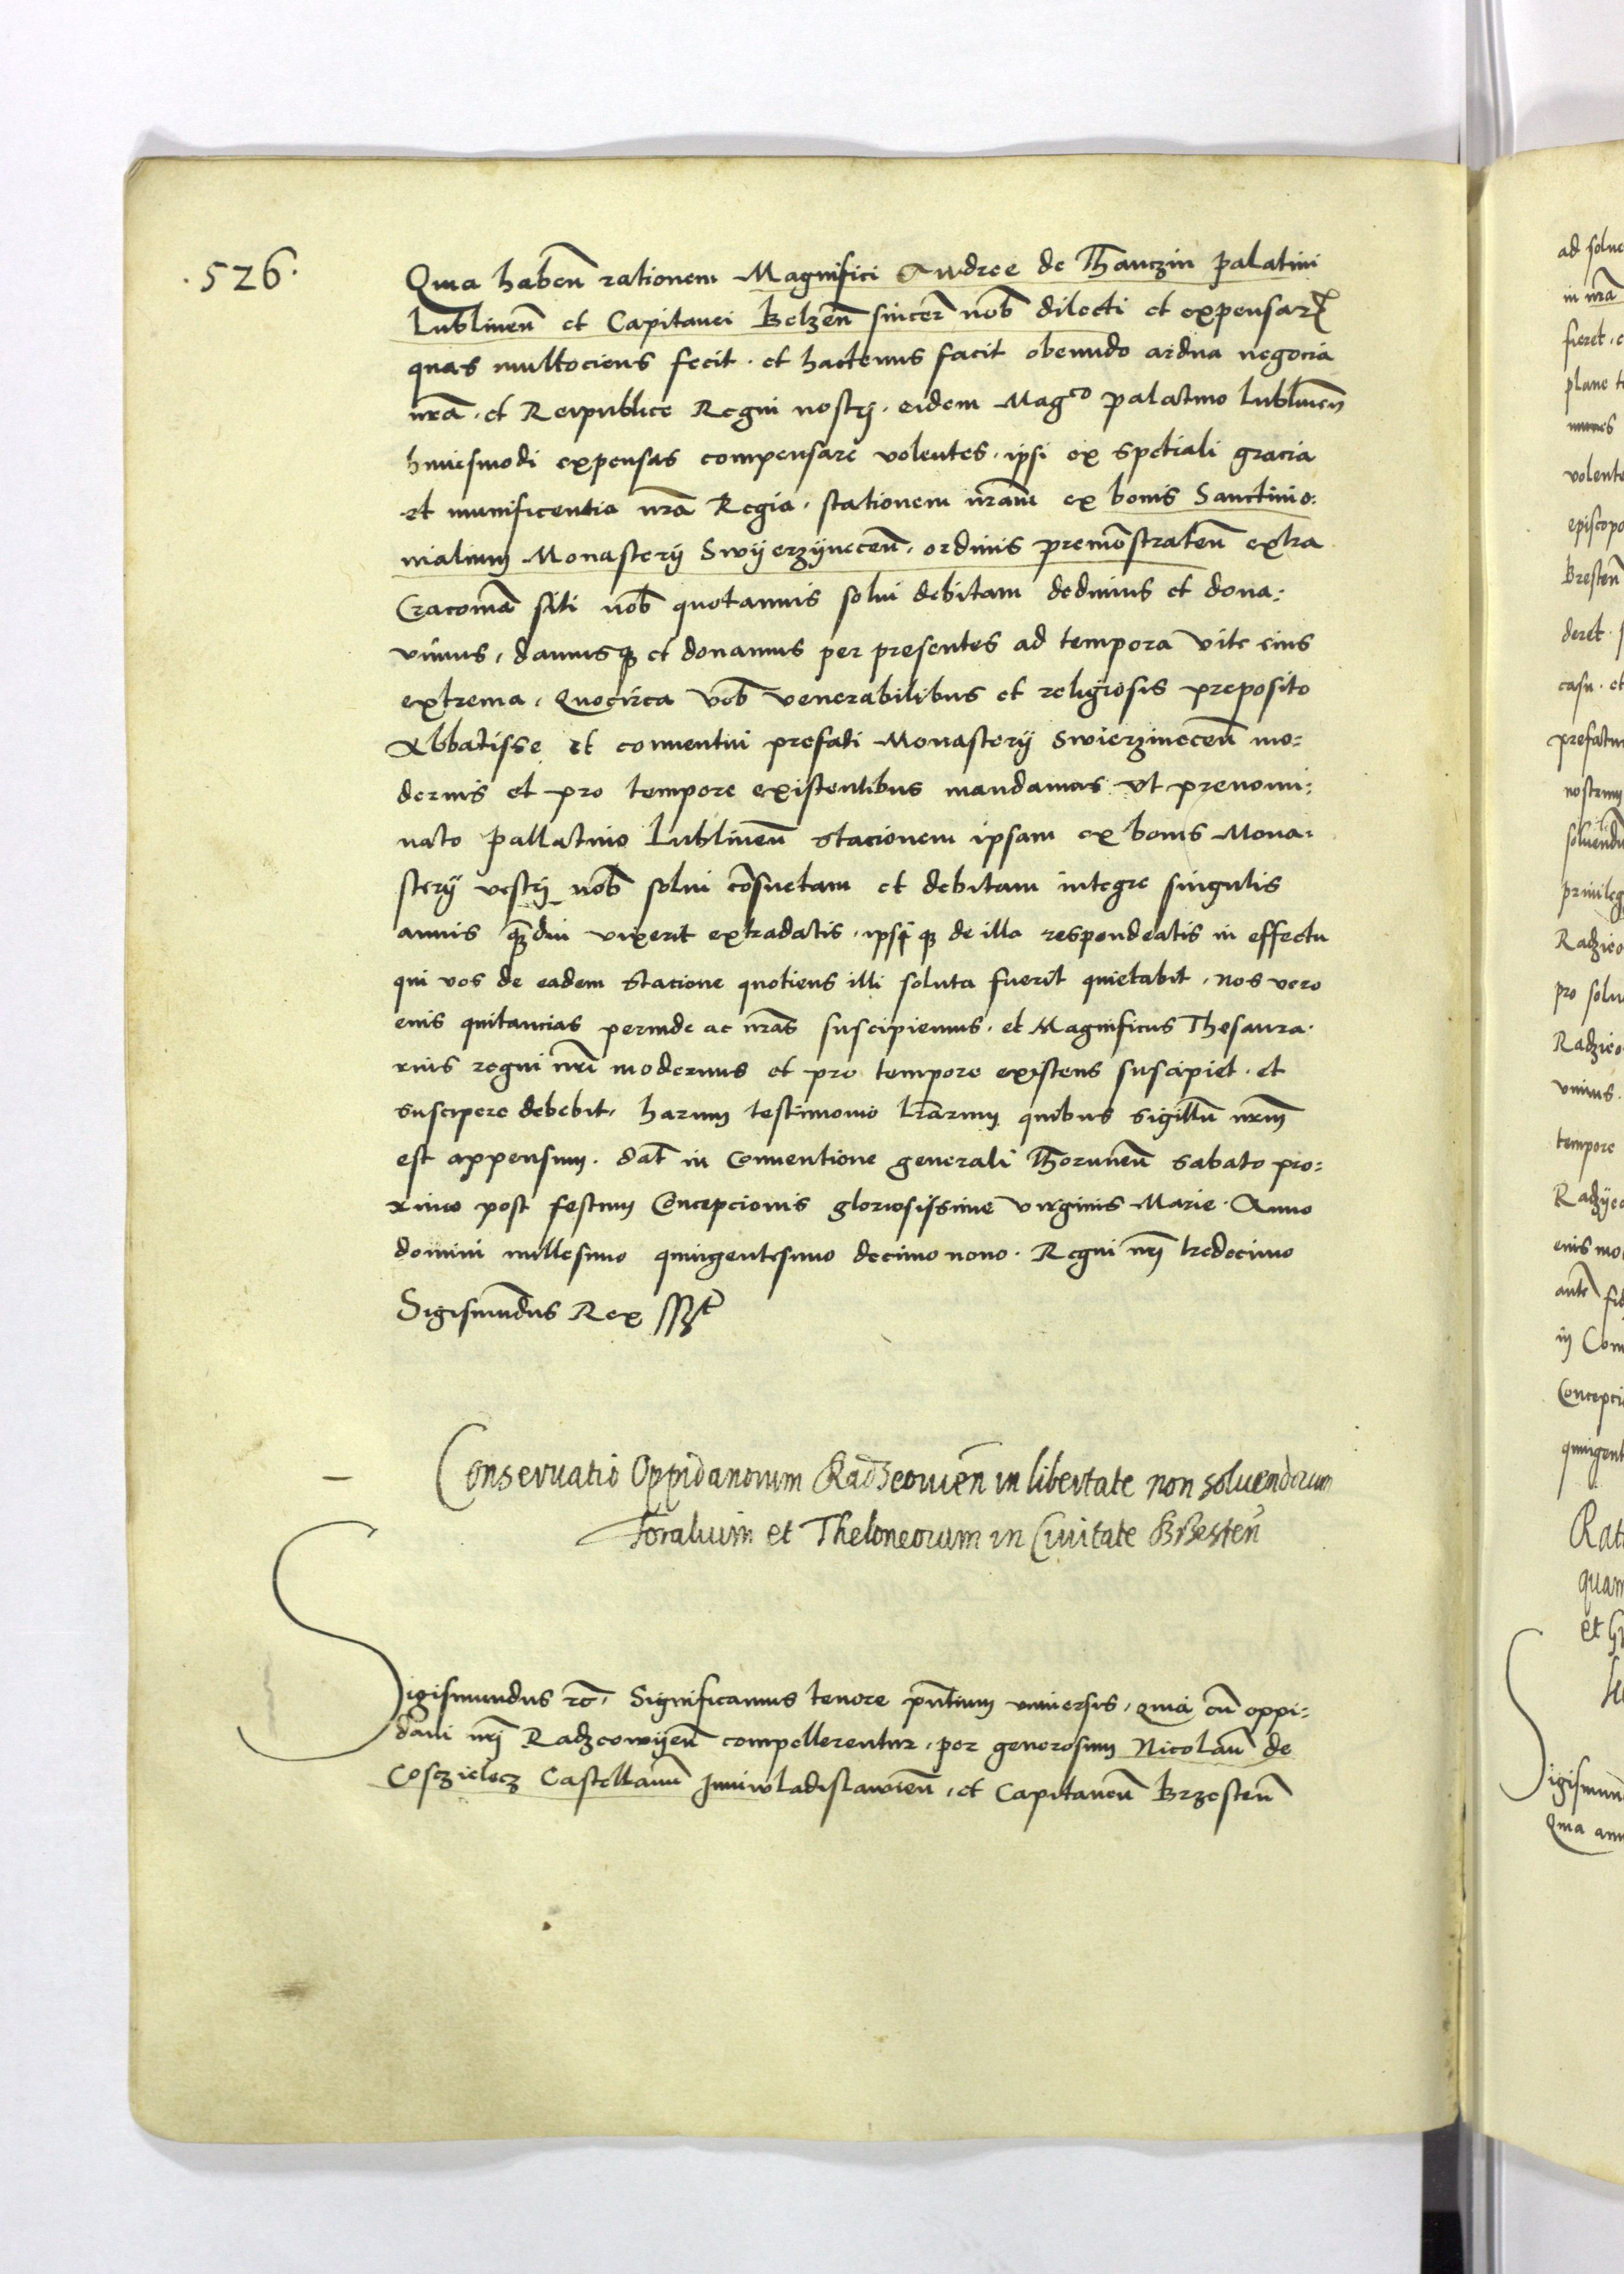 .526.
Quia haben̄ rationem Magnifici Andree de Thanczin palatini
Lublinen̄ et Capitanei Belzen̄ sincer̄ nob̄ dilecti et expensar̄
quas multociens fecit . et hactenus facit obeundo ardua negocia
nr̄a . et Reipublice Regni nostrj . eidem Mag^co palatino lublinen̄
huiesmodi expensas compensare volentes . ipsi ex spetiali gracia
et munificentia nr̄a Regia . stationem nr̄am ex bonis Sanctimo:
nialium Monasterij Swyerzynecen̄ . ordinis premōstraten̄ extra
Cracouiā siti nob̄ quotannis solui debitam dedimus et dona:
uimus . damusq₃ et donamus per presentes ad tempora vite eius
extrema . Quocirca vob̄ venerabilibus et religiosis preposito
Abbatisse et conuentui prefati Monasterij Swierzinecen̄ mo:
dernis et pro tempore existentibus mandamus vt prenomi:
nato pallatino Lublinen̄ stacionem ipsam ex bonis Mona:
sterij vestrj nob̄ solui cōsuetam et debitam integre singulis
annis q̄₃diu vixerit extradatis . ipsiq₃ de illa respondeatis in effectu
qui vos de eadem stacione quotiens illi soluta fuerit quietabit . nos vero
eius quitancias perinde ac nr̄as suscipiemus . et Magnificus Thesaura:
rius regni nr̄i modernus et pro tempore existens suscipiet . et
suscipere debebit . harum testimonio lr̄arum quibus sigillū nrm̄
est appensum . dat̄ in Conuentione generali Thorunen̄ sabato pro:
ximo post festum Concepcionis gloriosissime virginis Marie . Anno
domini millesimo quingentesimo decimo nono . Regni nr̄j tredecimo
Sigismūdus Rex sspt
Conseruatio Oppidanorum Radzeouien̄ in libertate non soluendorum
foralium et Theloneorum in Ciuitate Bresten̄
Sigismundus rc̄ . Significamus tenore pn̄tium vniuersis . quia cū oppi:
dani nr̄j Radzeowyen̄ compellerentur . per generosum Nicolaū de
Cosczielecz Castellanū Juniwladislauien̄ . et Capitaneū Brzesten̄